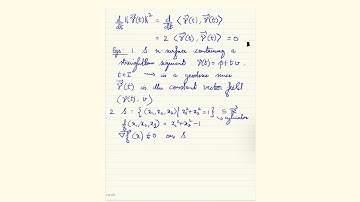 d/dt ||γ̇(t)||² = d/dt ⟨γ̇(t), γ̇(t)⟩
= 2 ⟨γ̈(t), γ̇(t)⟩ = 0
Egs: 1. S n-surface containing a
straight line segment γ(t) = p + tv
t ∈ I is a geodesic since
γ̇(t) is the constant vector field
(γ(t), v)
2. S = {(x₁, x₂, x₃) | x₁² + x₂² = 1} ⊆ ℝ³
cylinder
f(x₁, x₂, x₃) = x₁² + x₂² − 1
∇f(x) ≠ 0 on S